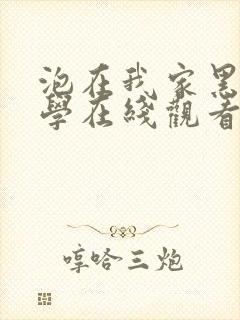 泡在我家黑
學在綫觀看
哼哈三炮